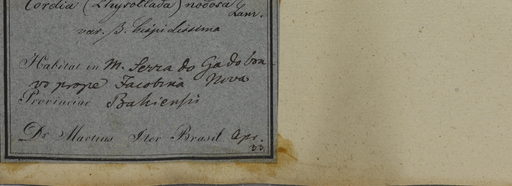 Cordia (Physoclada) nodosa Lam.
var. β. hispidissima
Habitat in M. Serra do Ga do bon-
vo prope Jacobina Nova
Provinciae Bahiensis
Dr. Martius Iter Brasil